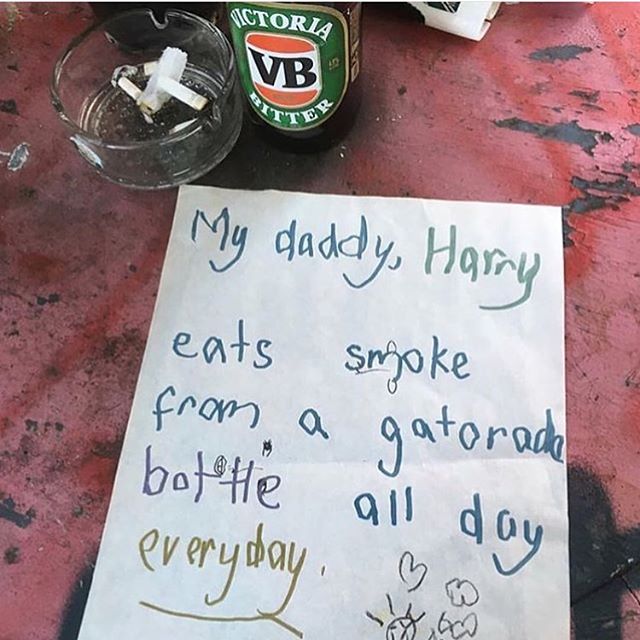 VICTORIA
VB
BITTER
My daddy, Harry
eats smoke
from a gatorade
bottle all day
everyday.